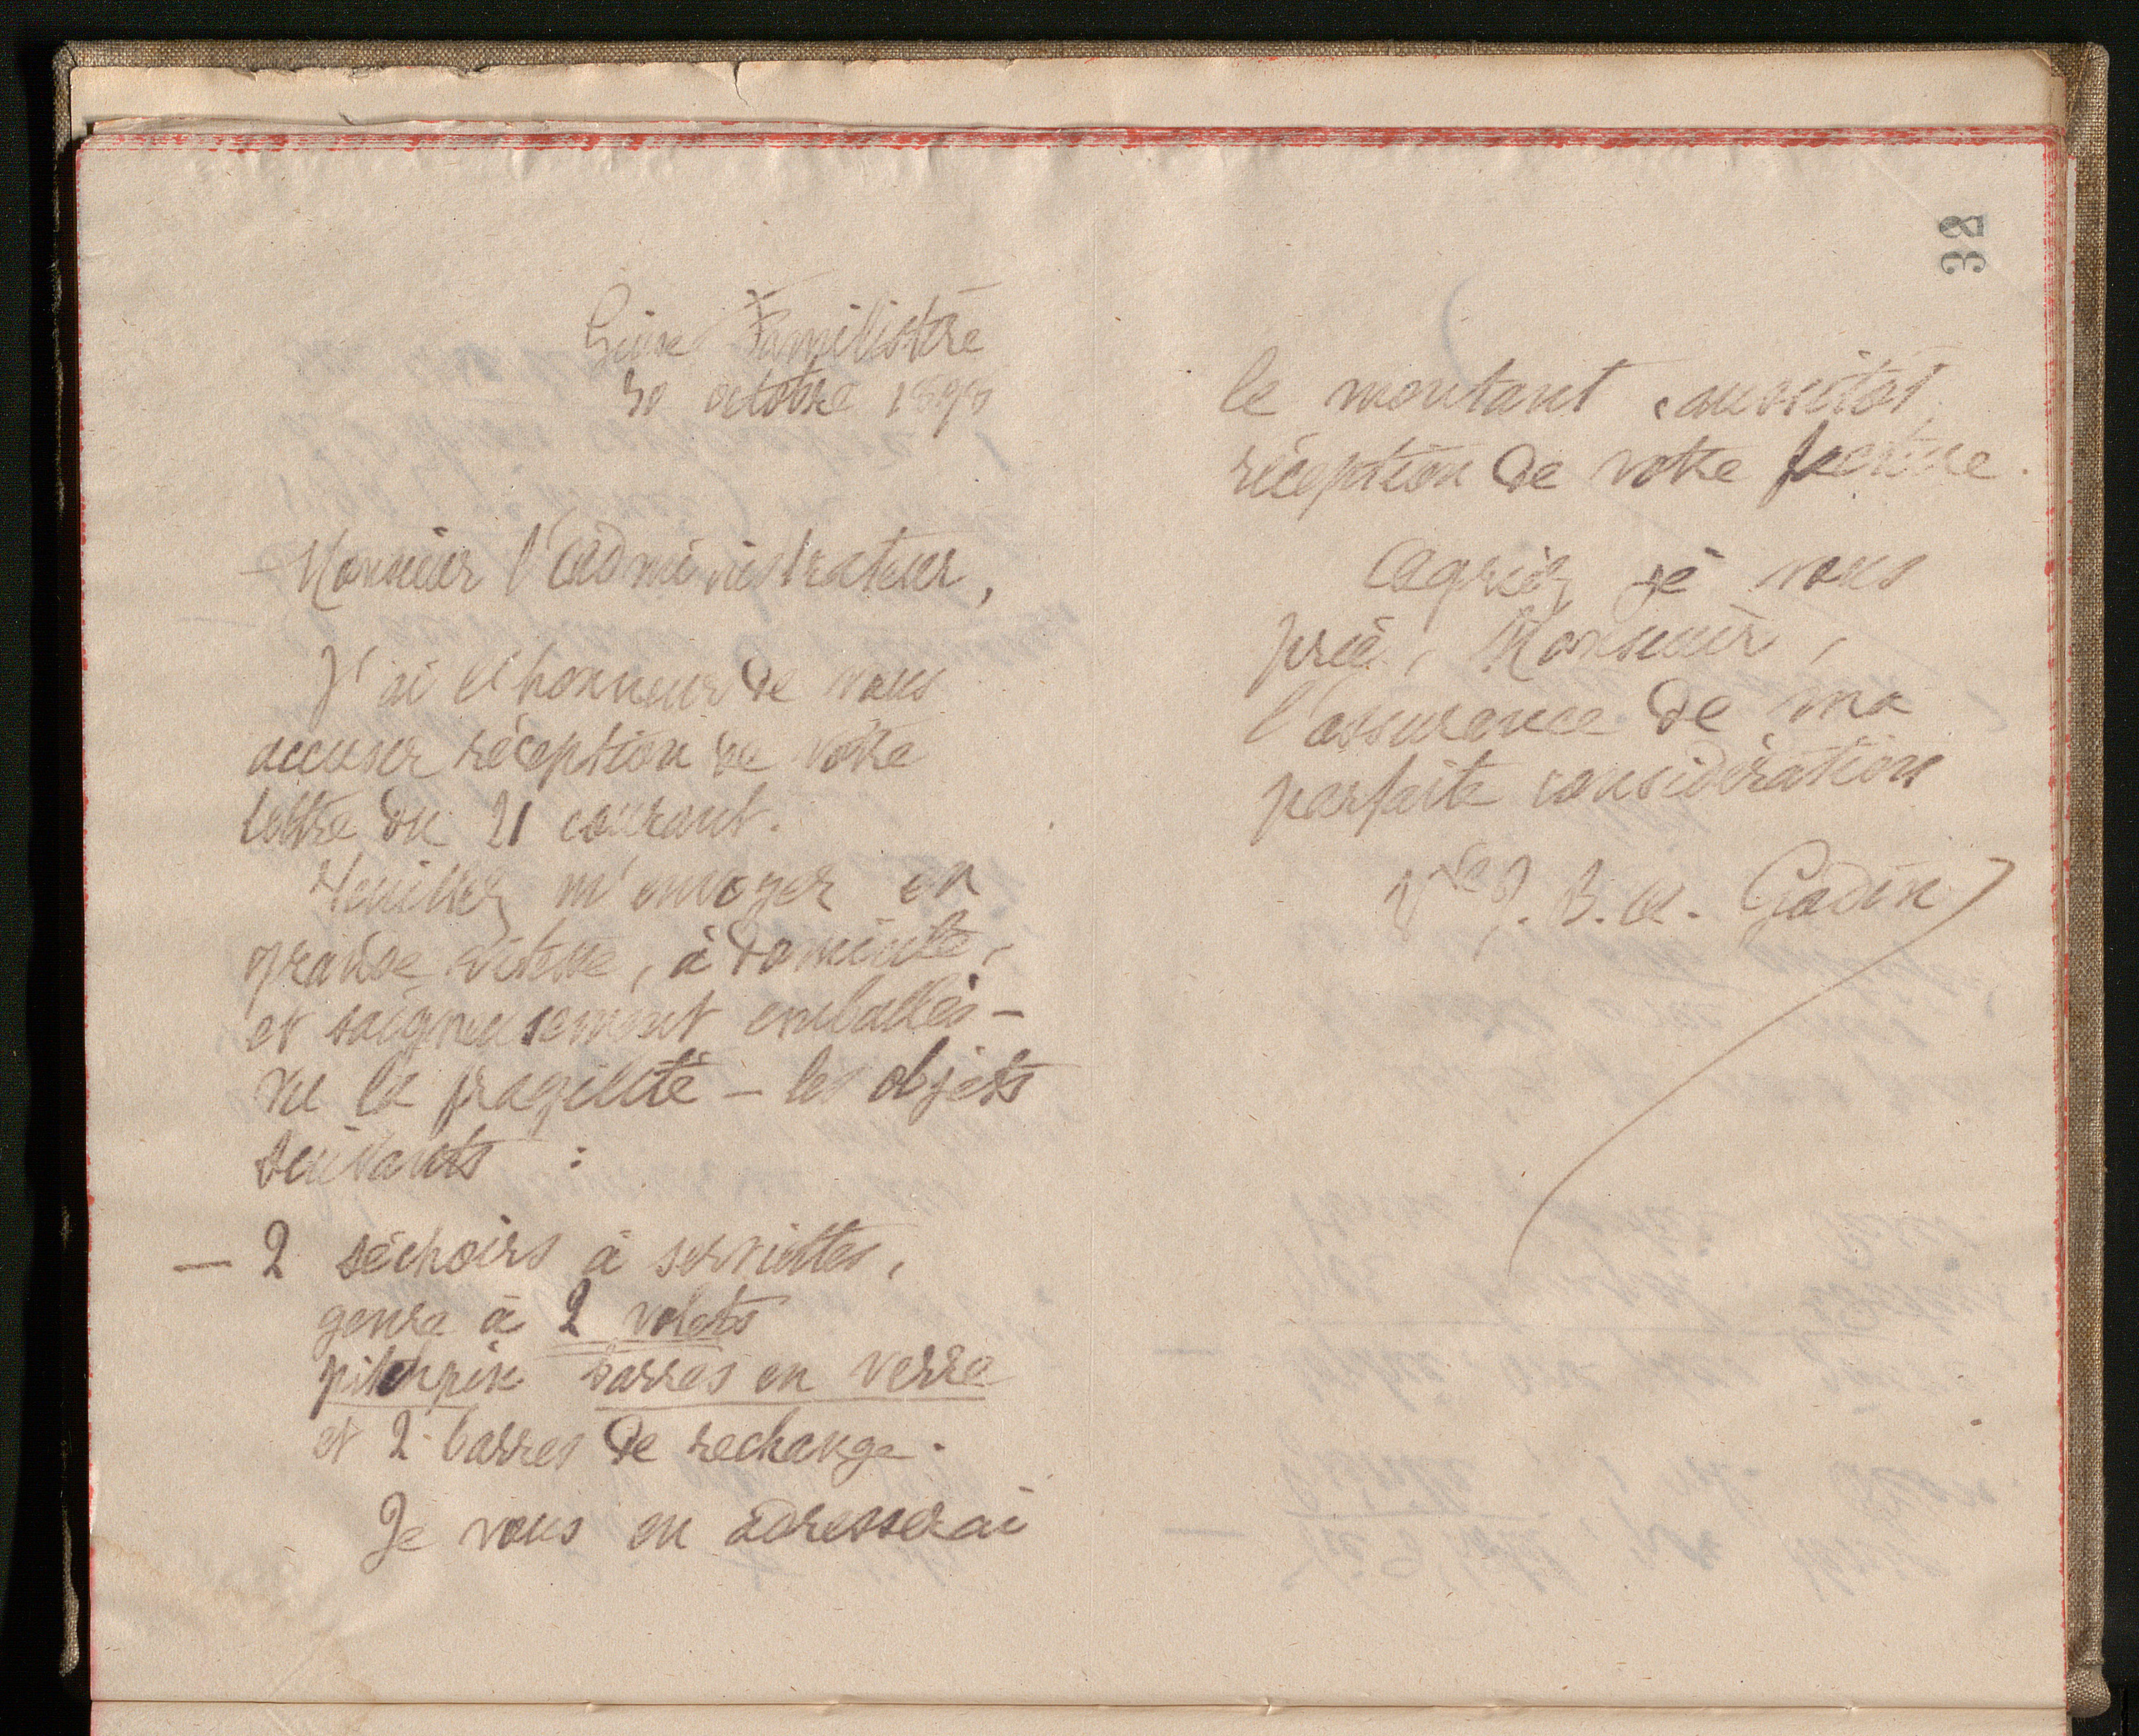 32
Guise Familistère
30 octobre 1890
Monsieur l'administrateur,
J'ai l'honneur de vous
accuser réception de votre
lettre du 21 courant.
Veuillez m'envoyer en
grande vitesse, à domicile,
et soigneusement emballés –
vu la fragilité – les objets
suivants :
— 2 séchoirs à serviettes,
genre à 2 volets
pitchpin barres en verre
et 2 barres de rechange.
Je vous en adresserai
le montant aussitôt
réception de votre facture.
Agréez je vous
prie, Monsieur,
l'assurance de ma
parfaite considération
Vve J. B. A. Godin